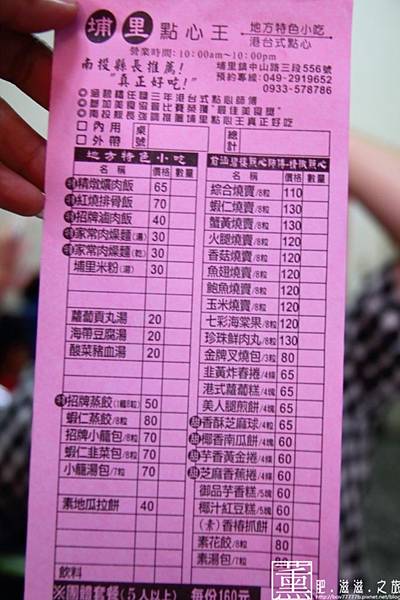 埔里 點心王 地方特色小吃
港台式點心
營業時間：10:00am~10:00pm
南投縣長推薦！
"真正好吃！"
埔里鎮中山路三段556號
預約專線：049-2919652
0933-578786
參加美食協會比賽榮獲"最佳美食獎"
南投縣長強調推薦埔里點心王真正好吃
內用 桌號 總計
外帶
地方特色小吃
名稱 價格 數量
精燉爌肉飯 65
紅燒排骨飯 70
招牌滷肉飯 40
家常肉燥麵(湯) 30
家常肉燥麵(乾) 30
埔里米粉(湯) 30
蘿蔔貢丸湯 20
海帶豆腐湯 20
酸菜豬血湯 20
招牌蒸餃(1籠8粒) 50
蝦仁蒸餃/8粒 70
招牌小籠包/7粒 70
蝦仁韭菜包/8粒 70
小籠湯包/7粒 70
素地瓜拉餅 40
飲料
名稱 價格 數量
綜合燒賣/8粒 110
蝦仁燒賣/8粒 130
蟹黃燒賣/8粒 130
火腿燒賣/8粒 120
香菇燒賣/8粒 120
魚翅燒賣/8粒 120
鮑魚燒賣/8粒 120
玉米燒賣/8粒 120
七彩海棠果/8粒 120
珍珠鮮肉丸/8粒 130
金牌叉燒包/3粒 80
韭黃炸春捲/4塊 65
港式蘿蔔糕/4塊 65
美人腿煎餅/4塊 65
甜 香酥芝麻球/4粒 65
甜 椰香南瓜餅/4塊 60
甜 芋香黃金捲/4塊 60
甜 芝麻香蕉捲/4塊 60
御品芋香糕/5塊 60
椰汁紅豆糕/5塊 60
(素)香椿抓餅 40
素花餃/8粒 80
素湯包/7粒 80
※團體套餐(5人以上) 每份160元
薰 肥.滋滋.之旅